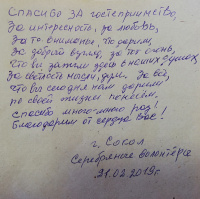 Спасибо за гостеприимство,
За интересность, за любовь,
За то внимание, что дарим,
За добрый взгляд, за тех очень,
Что вы зажгли здесь в наших душах,
За светлость мысли, души. За всё,
что вы сегодня нам дарили
по своей жизни понесём.
Спасибо много-много раз!
Благодарим от сердца Вас!
г. Сокол
Серебряные волонтёры
21.02.2019г.